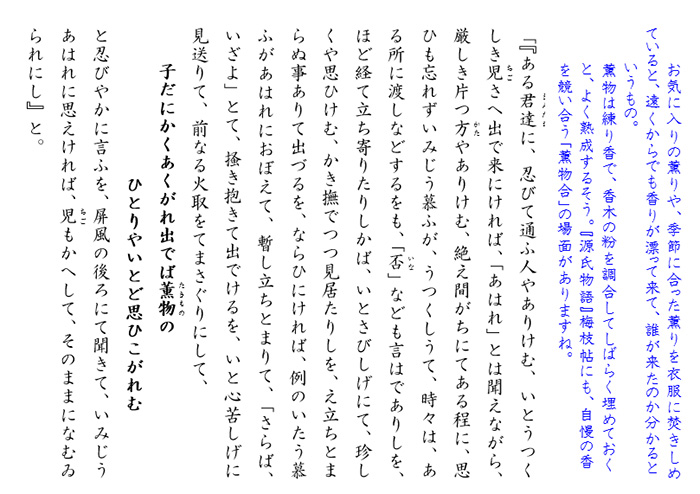 お気に入りの薫りや、季節に合った薫りを衣服に焚きしめ
ていると、遠くからでも香りが漂って来て、誰が来たのか分かると
いうもの。
薫物は練り香で、香木の粉を調合してしばらく埋めておく
と、よく熟成するそう。『源氏物語』梅枝帖にも、自慢の香
を競い合う「薫物合」の場面がありますね。
「『ある君達に、忍びて通ふ人やありけむ、いとうつく
しき児さへ出で来にければ、「あはれ」とは聞えながら、
厳しき片つ方やありけむ、絶え間がちにてある程に、思
ひも忘れずいみじう慕ふが、うつくしうて、時々は、あ
る所に渡しなどするをも、「否」なども言はでありしを、
ほど経て立ち寄りたりしかば、いとさびしげにて、珍し
くや思ひけむ、かき撫でつつ見居たりしを、え立ちとま
らぬ事ありて出づるを、ならひにければ、例のいたう慕
ふがあはれにおぼえて、暫し立ちとまりて、「さらば、
いざよ」とて、掻き抱きて出でけるを、いと心苦しげに
見送りて、前なる火取をてまさぐりにして、
子だにかくあくがれ出でば薫物の
ひとりやいとど思ひこがれむ
と忍びやかに言ふを、屏風の後ろにて聞きて、いみじう
あはれに思えければ、児もかへして、そのままになむゐ
られにし』と。